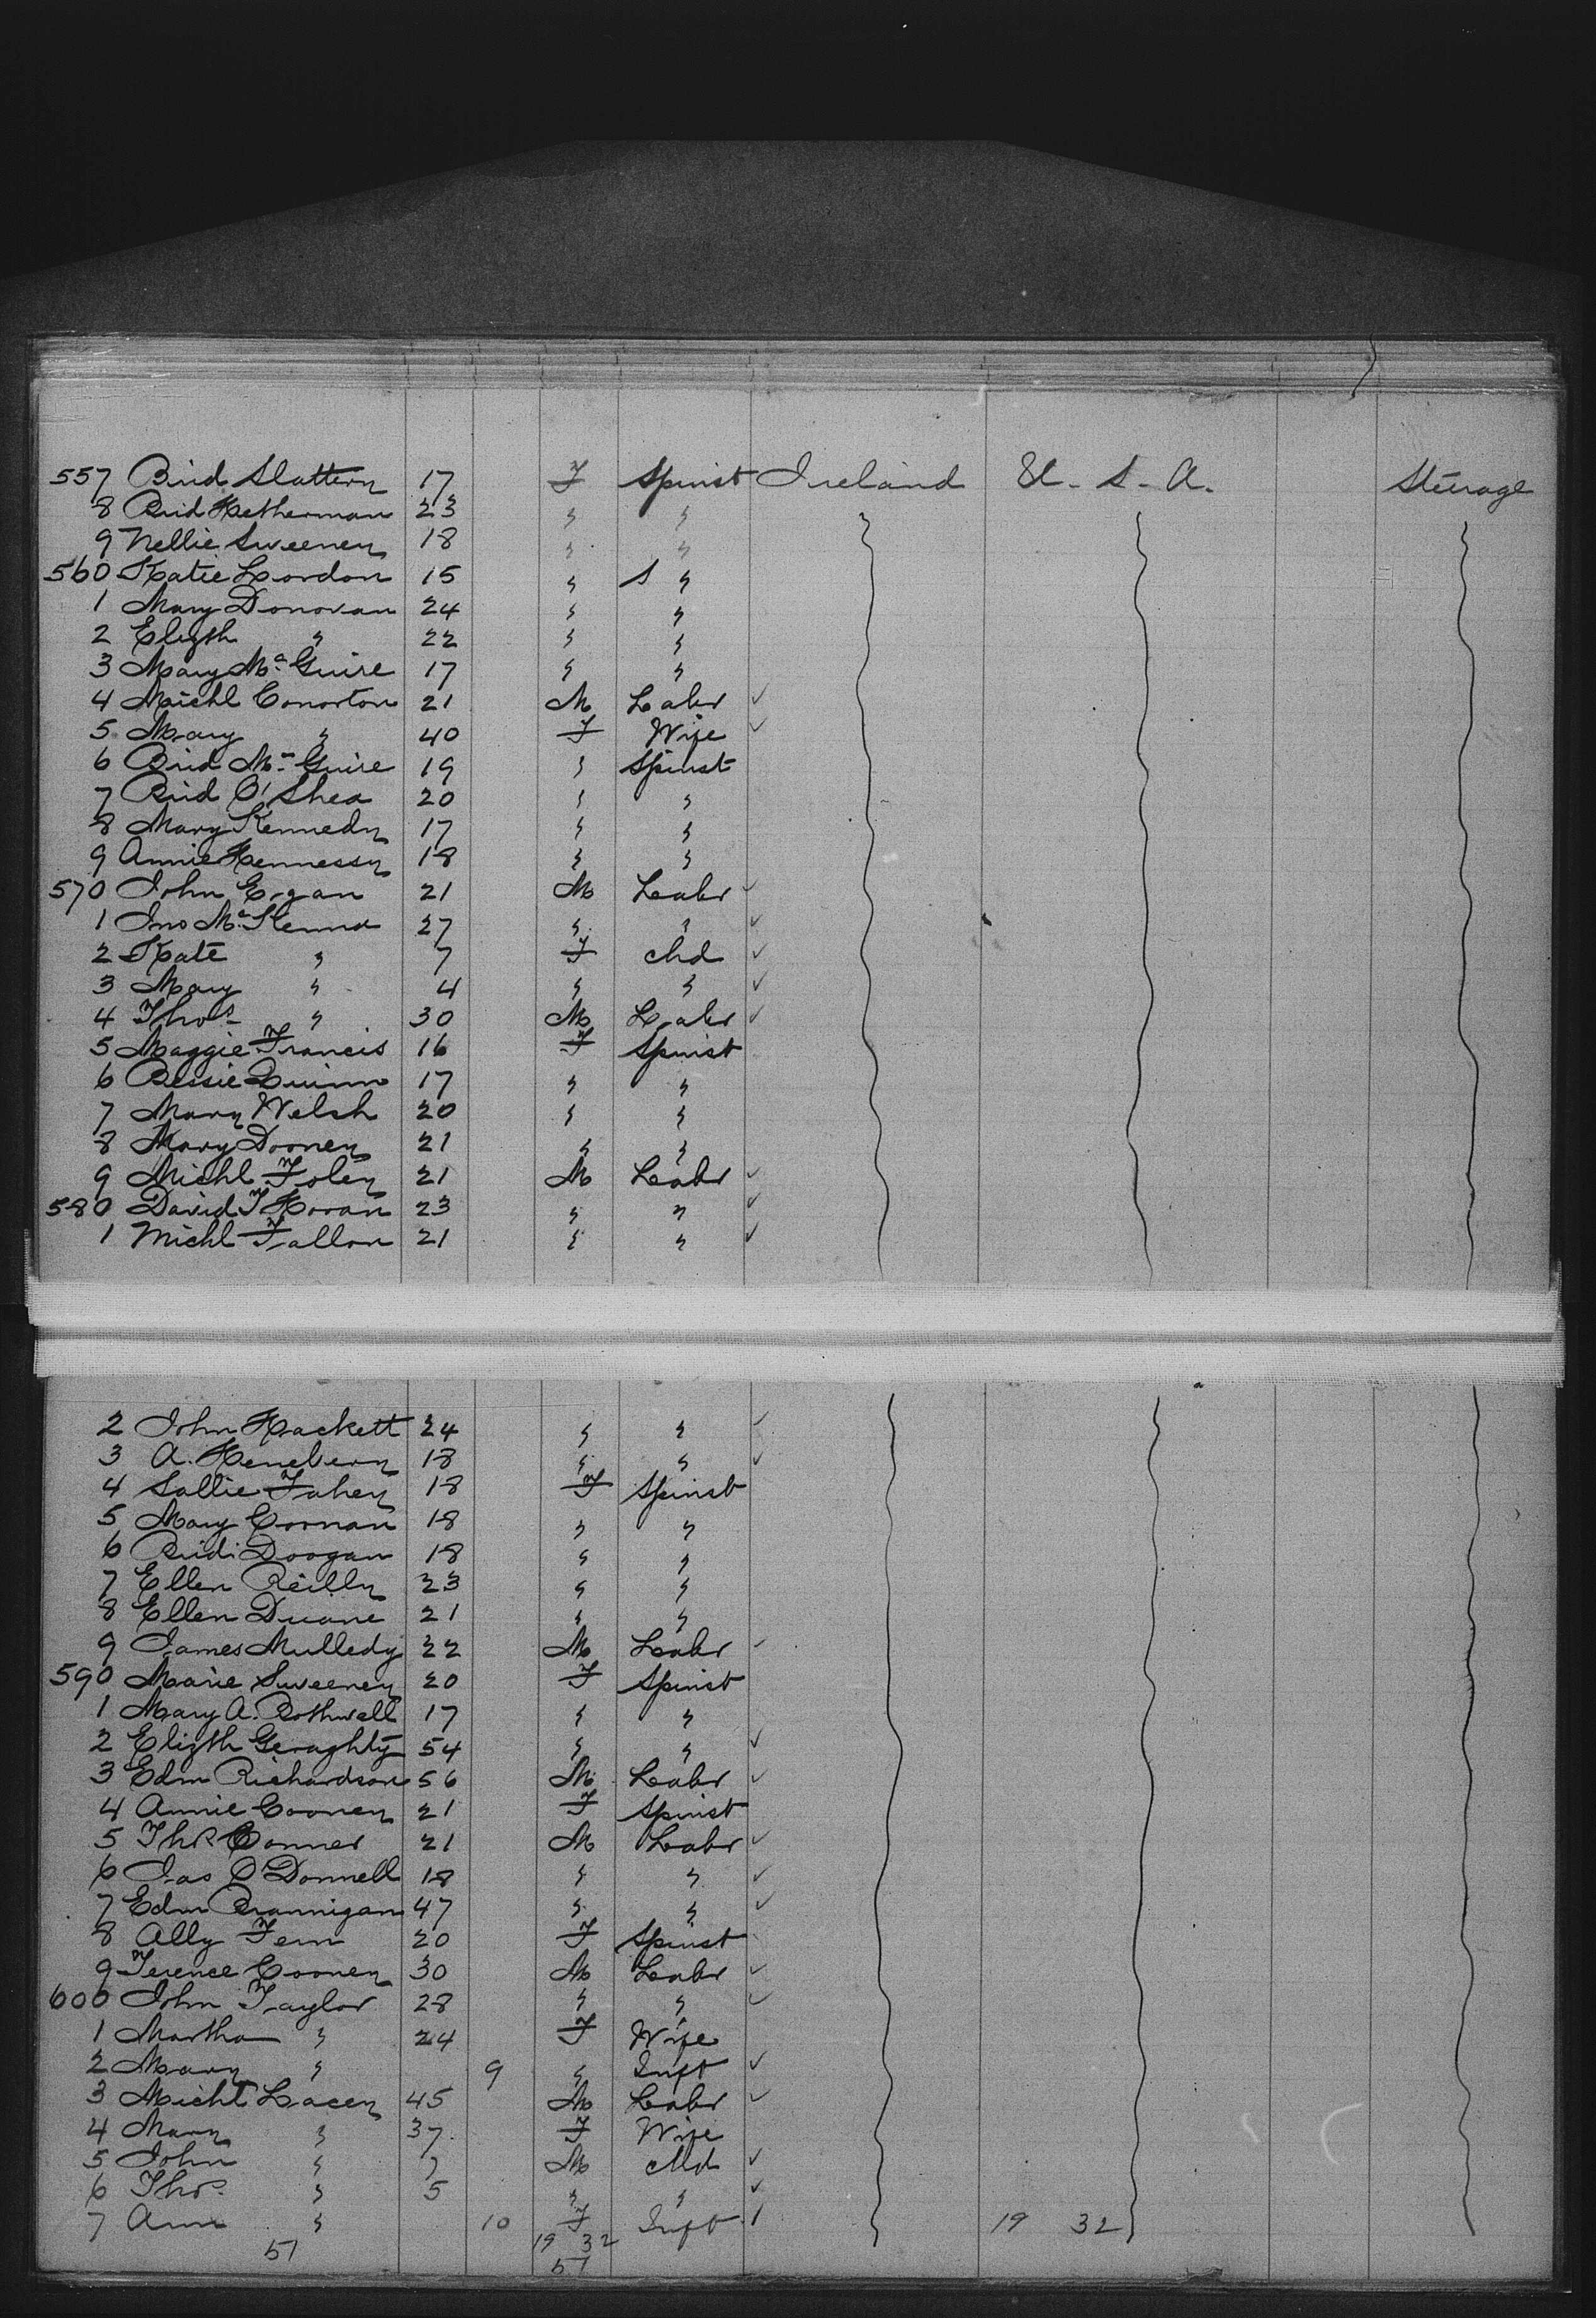 557 Brid Slattery 17 F Spinst Ireland U. S. A. Steerage
8 Brid Hetherman 23 " "
9 Nellie Sweeney 18 " "
560 Katie Lordon 15 " S "
1 Mary Donovan 24 " "
2 Elizth " 22 " "
3 Mary McGuire 17 " "
4 Michl Conorton 21 M Labr ✓
5 Mary " 40 F Wife ✓
6 Brid McGuire 19 " Spinst
7 Brid O'Shea 20 " "
8 Mary Kennedy 17 " "
9 Annie Hennessy 18 " "
570 John Egan 21 M Labr ✓
1 Jno McKenna 27 " " ✓
2 Kate " 7 F chd ✓
3 Mary " 4 " " ✓
4 Thos " 30 M Labr ✓
5 Maggie Francis 16 F Spinst
6 Bessie Quinn 17 " "
7 Mary Welsh 20 " "
8 Mary Dooney 21 " "
9 Michl Foley 21 M Labr ✓
580 David T Horan 23 " " ✓
1 Michl Fallon 21 " " ✓
2 John Hackett 24 " " ✓
3 A. Henebery 18 " " ✓
4 Sallie Fahey 18 F Spinst
5 Mary Coonan 18 " "
6 Brid. Doogan 18 " "
7 Ellen Reilly 23 " "
8 Ellen Duane 21 " "
9 James Mulledy 22 M Labr ✓
590 Marie Sweeney 20 F Spinst
1 Mary A. Rothwell 17 " "
2 Elizth Geraghty 54 " " ✓
3 Edm Richardson 56 M Labr ✓
4 Annie Cooney 21 F Spinst
5 Thos Conner 21 M Labr ✓
6 Jas O'Donnell 18 " " ✓
7 Edm Brannigan 47 " " ✓
8 Ally Fern 20 F Spinst
9 Terence Cooney 30 M Labr ✓
600 John Taylor 28 " " ✓
1 Martha " 24 F Wife
2 Mary " 9 " Inft ✓
3 Michl Lacey 45 M Labr ✓
4 Mary " 37 F Wife
5 John " 7 M chd ✓
6 Thos. " 5 " " ✓
7 Ann " 10 F Inft ✓ 19 32
51 19 32
51